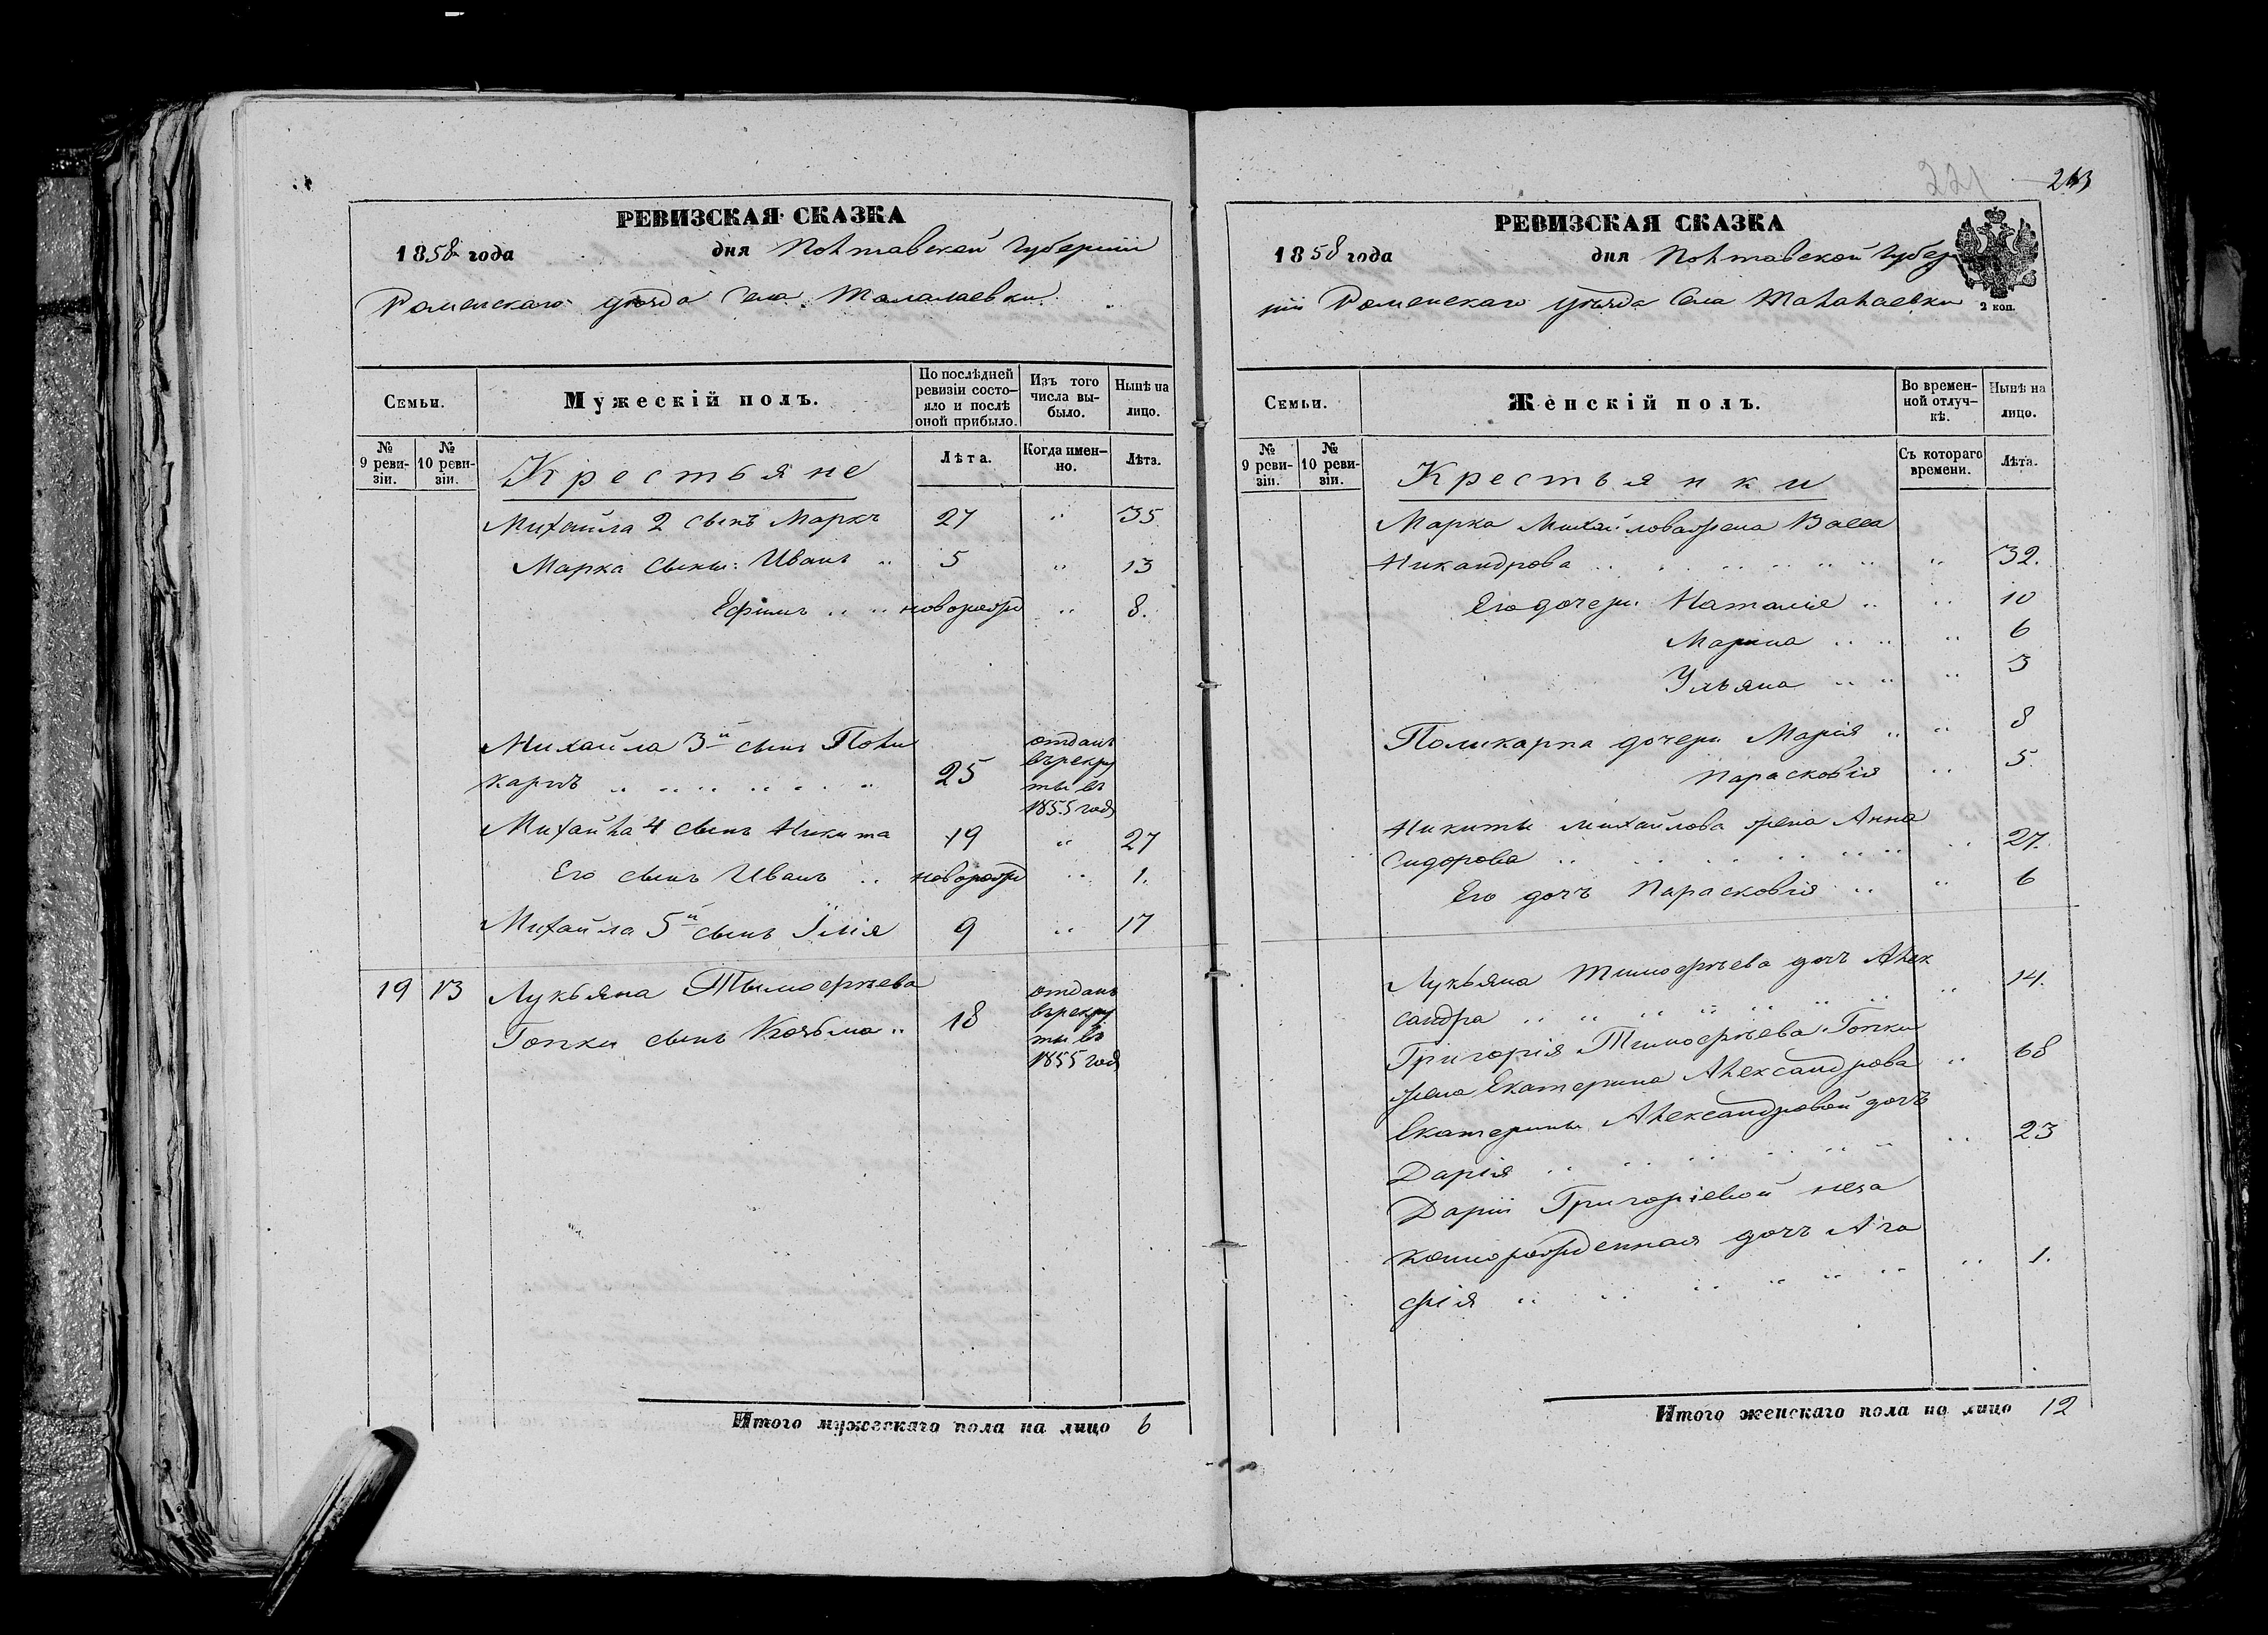 221 213
РЕВИЗСКАЯ СКАЗКА
1858 года дня Полтавской Губернiи
Роменскаго уѣзда Села Талалаевки
Семьи.
Мужескій полъ.
По послѣдней ревизіи состояло и послѣ оной прибыло.
Изъ того числа выбыло.
Нынѣ на лицо.
№ 9 ревизіи.
№ 10 ревизіи.
Крестьяне
Лѣта.
Когда именно.
Лѣта.
Михайла 2 сынъ Маркъ 27 " 35
Марка сыны: Иванъ " 5 " 13
Ефимъ " " новорожд " 8.
Михайла 3й сынъ Поли
карпъ " " " " " " " 25 отданъ въ рекру ты въ 1855 год
Михайла 4 сынъ Никита 19 " 27
Его сынъ Иванъ " новорожд " 1.
Михайла 5й сынъ Iлія 9 " 17
19 13 Лукьяна Тымофѣева
Гопки сынъ Козьма " 18 отданъ въ рекру ты въ 1855 год
Итого мужескаго пола на лицо 6
РЕВИЗСКАЯ СКАЗКА
1858 года дня Полтавской Губер
нiи Роменскаго уѣзда Села Талалаевки
2 коп.
Семьи.
Женскій полъ.
Во временной отлучкѣ.
Нынѣ на лицо.
№ 9 ревизіи.
№ 10 ревизіи.
Крестьянки
Съ котораго времени.
Лѣта.
Марка Михайлова жена Васса
Никандрова " " " " " " " " 32.
Его дочери Наталiя " " 10
Марина " " " 6
Ульяна " " " 3
Поликарпа дочери Марія " " 8
Парасковія " 5.
Никиты Михайлова жена Анна
Сидорова " " " " " " " " 27.
Его дочь Парасковія " " 6
Лукьяна Тимофѣева дочь Алек
сандра " " " " " " " " 14.
Григорія Тимофѣева Гопки
жена Екатерина Александрова " 68
Екатерины Александровой дочь
Дарія " " " " " " " " 23
Дарiи Григоріевой неза
коннорожденная дочь Ага
фія " " " " " " " 1.
Итого женскаго пола на лицо 12